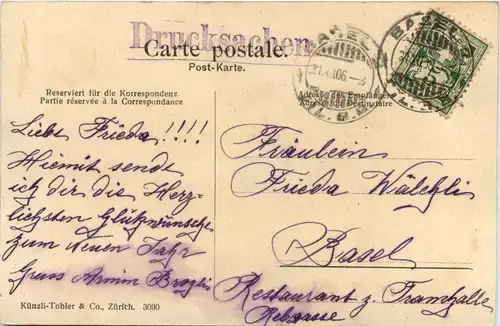 Drucksachen
Carte postale.
Post-Karte.
Reserviert für die Korrespondenz
Partie réservée à la Correspondance
Adresse des Empfängers
Adresse du Destinataire
BASEL
BASEL
Liebe Frieda!!!!
Hiemit sende
ich dir die Herz-
lichsten Glükwünsche
zum Neuen Jahr
Gruss Armin
Fräulein
Frieda Wälchli
Basel
Restaurant z. Tramhalle
Rebgasse
Künzli-Tobler & Co., Zürich. 3090